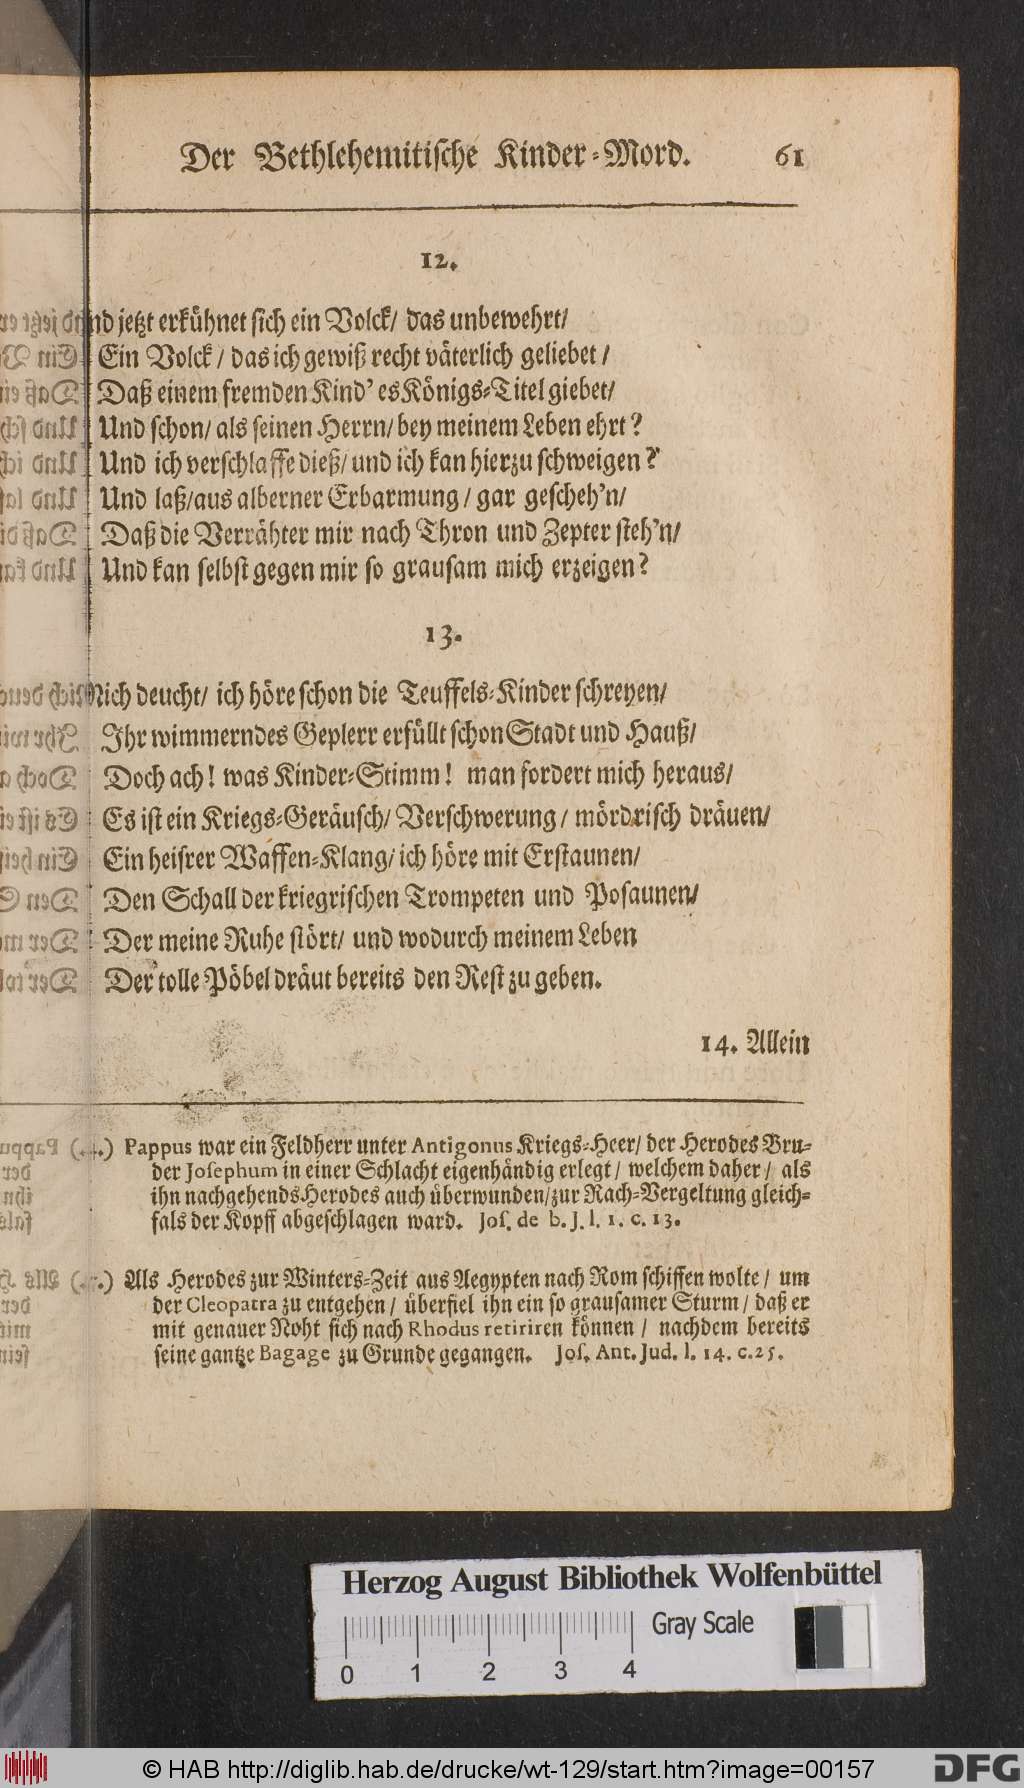 Der Bethlehemitische Kinder-Mord. 61
12.
Und jetzt erkühnet sich ein Volck/ das unbewehrt/
Ein Volck / das ich gewiß recht väterlich geliebet /
Daß einem fremden Kind' es Königs-Titel giebet/
Und schon/ als seinen Herrn/ bey meinem Leben ehrt?
Und ich verschlaffe dieß/ und ich kan hierzu schweigen?
Und laß/ aus alberner Erbarmung / gar gescheh'n/
Daß die Verrähter mir nach Thron und Zepter steh'n/
Und kan selbst gegen mir so grausam mich erzeigen?
13.
Mich deucht/ ich höre schon die Teuffels-Kinder schreyen/
Ihr wimmerndes Geplerr erfüllt schon Stadt und Hauß/
Doch ach! was Kinder-Stimm! man fordert mich heraus/
Es ist ein Kriegs-Geräusch/ Verschwerung / mördrisch dräuen/
Ein heisrer Waffen-Klang/ ich höre mit Erstaunen/
Den Schall der kriegrischen Trompeten und Posaunen/
Der meine Ruhe stört/ und wodurch meinem Leben
Der tolle Pöbel dräut bereits den Rest zu geben.
14. Allein
Pappus war ein Feldherr unter Antigonus Kriegs-Heer/ der Herodes Bru-
der Josephum in einer Schlacht eigenhändig erlegt / welchem daher / als
ihn nachgehends Herodes auch überwunden/ zur Rach-Vergeltung gleich-
fals der Kopff abgeschlagen ward. Jos. de b. J. l. 1. c. 13.
Als Herodes zur Winters-Zeit aus Aegypten nach Rom schiffen wolte / um
der Cleopatra zu entgehen / überfiel ihn ein so grausamer Sturm / daß er
mit genauer Noht sich nach Rhodus retiriren können / nachdem bereits
seine gantze Bagage zu Grunde gegangen. Jos. Ant. Jud. l. 14. c. 25.
Herzog August Bibliothek Wolfenbüttel
Gray Scale
0 1 2 3 4
© HAB http://diglib.hab.de/drucke/wt-129/start.htm?image=00157
DFG